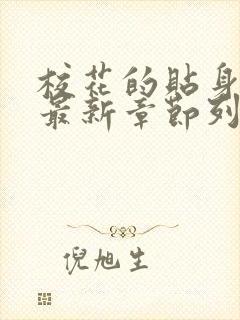 校花的貼身
最新章節列
倪旭生